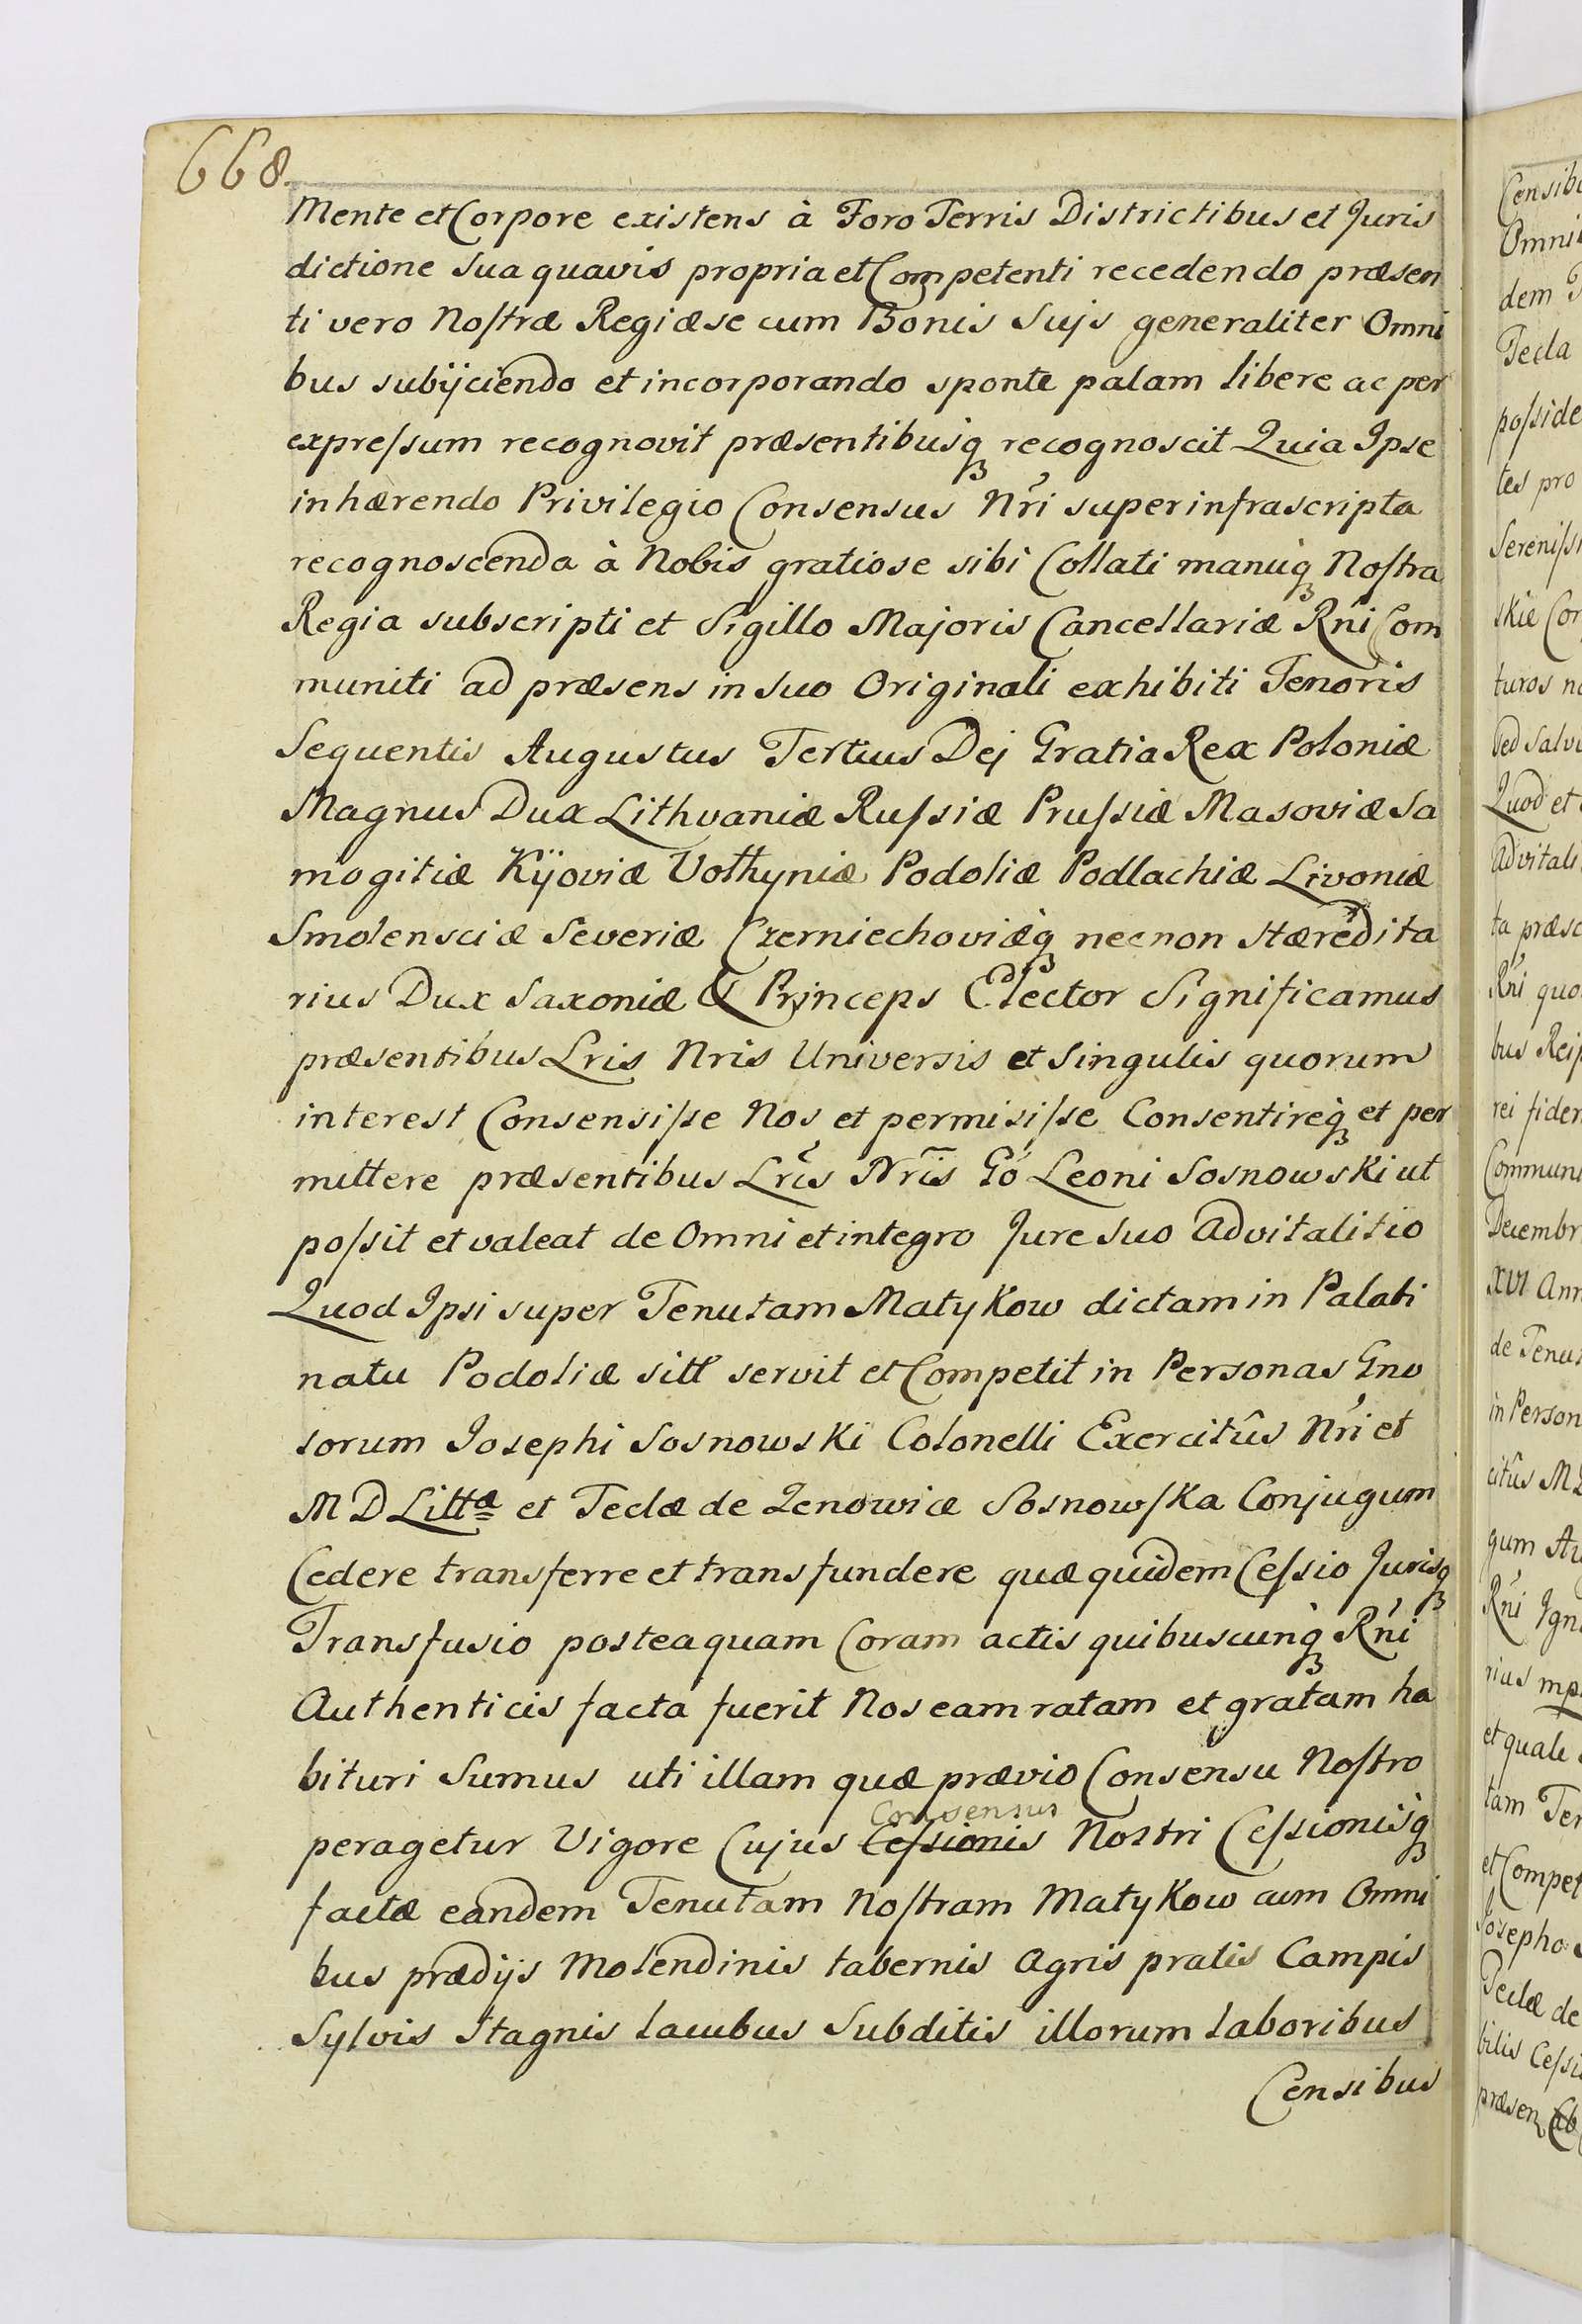 668.
Mente et Corpore existens à Foro Terris Districtibus et Juris
dictione sua quavis propria et Competenti recedendo præsen
ti vero Nostræ Regiæ se cum Bonis Sujs generaliter Omni
bus subijciendo et incorporando sponte palam libere ac per
expressum recognovit præsentibusq́ recognoscit Quia Ipse
inhærendo Privilegio Consensus Nři super infrascripta
recognoscenda à Nobis gratiose sibi Collati manuq́ Nostra
Regia subscripti et Sigillo Majoris Cancellariæ Rňi Com
muniti ad præsens in suo Originali exhibiti Tenoris
Sequentis Augustus Tertius Dej Gratia Rex Poloniæ
Magnus Dux Lithvaniæ Russiæ Prussiæ Masoviæ Sa
mogitiæ Kijoviæ Volhyniæ Podoliæ Podlachiæ Livoniæ
Smolensciæ Severiæ Czerniechoviæq́ necnon Hæredita
rius Dux Saxoniæ & Princeps Elector Significamus
præsentibus Lris Nris Universis et Singulis quorum
interest Consensisse Nos et permisisse Consentireq́ et per
mittere præsentibus Lris Nris Go Leoni Sosnowski ut
possit et valeat de Omni et integro Jure Suo Advitalitio
Quod Ipsi super Tenutam Matykow dictam in Palati
natu Podoliæ sitt servit et Competit in Personas Gno
sorum Josephi Sosnowski Colonelli Exercitûs Nři et
M D Littæ et Teclæ de Zenowiæ Sosnowska Conjugum
Cedere transferre et transfundere quæ quidem Cessio Jurisq́
Transfusio posteaquam Coram actis quibuscunq́ Rňi
Authenticis facta fuerit Nos eam ratam et gratam ha
bituri Sumus uti illam quæ prævio Consensu Nostro
Consensus
peragetur Vigore Cujus Cessionis Nostri Cessionisq́
factæ eandem Tenutam Nostram Matykow cum Omni
bus prædijs Molendinis tabernis Agris pratis Campis
Sylvis Stagnis lacubus Subditis illorum laboribus
Censibus